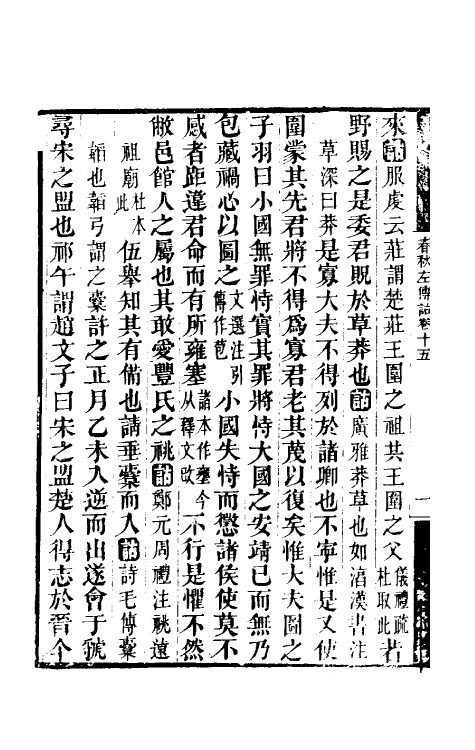 春秋左傳詁卷十五
一
來詁服虔云莊謂楚莊王圍之祖共王圍之父儀禮疏杜取此若
野賜之是委君貺於草莽也詁廣雅莽草也如湻漢書注
草深曰莽是寡大夫不得列於諸卿也不寧惟是又使
圍蒙其先君將不得爲寡君老其蔑以復矣惟大夫圖之
子羽曰小國無罪恃實其罪將恃大國之安靖已而無乃
包藏禍心以圖之文選注引傳作苞小國失恃而懲諸侯使莫不
感者距違君命而有所雍塞諸本作壅今从釋文改不行是懼不然
敝邑館人之屬也其敢愛豐氏之祧詁鄭元周禮注祧遠
祖廟杜本此伍舉知其有備也請垂櫜而入詁詩毛傳櫜
韜也韜弓謂之櫜許之正月乙未入逆而出遂會于虢
尋宋之盟也祁午謂趙文子曰宋之盟楚人得志於晉今